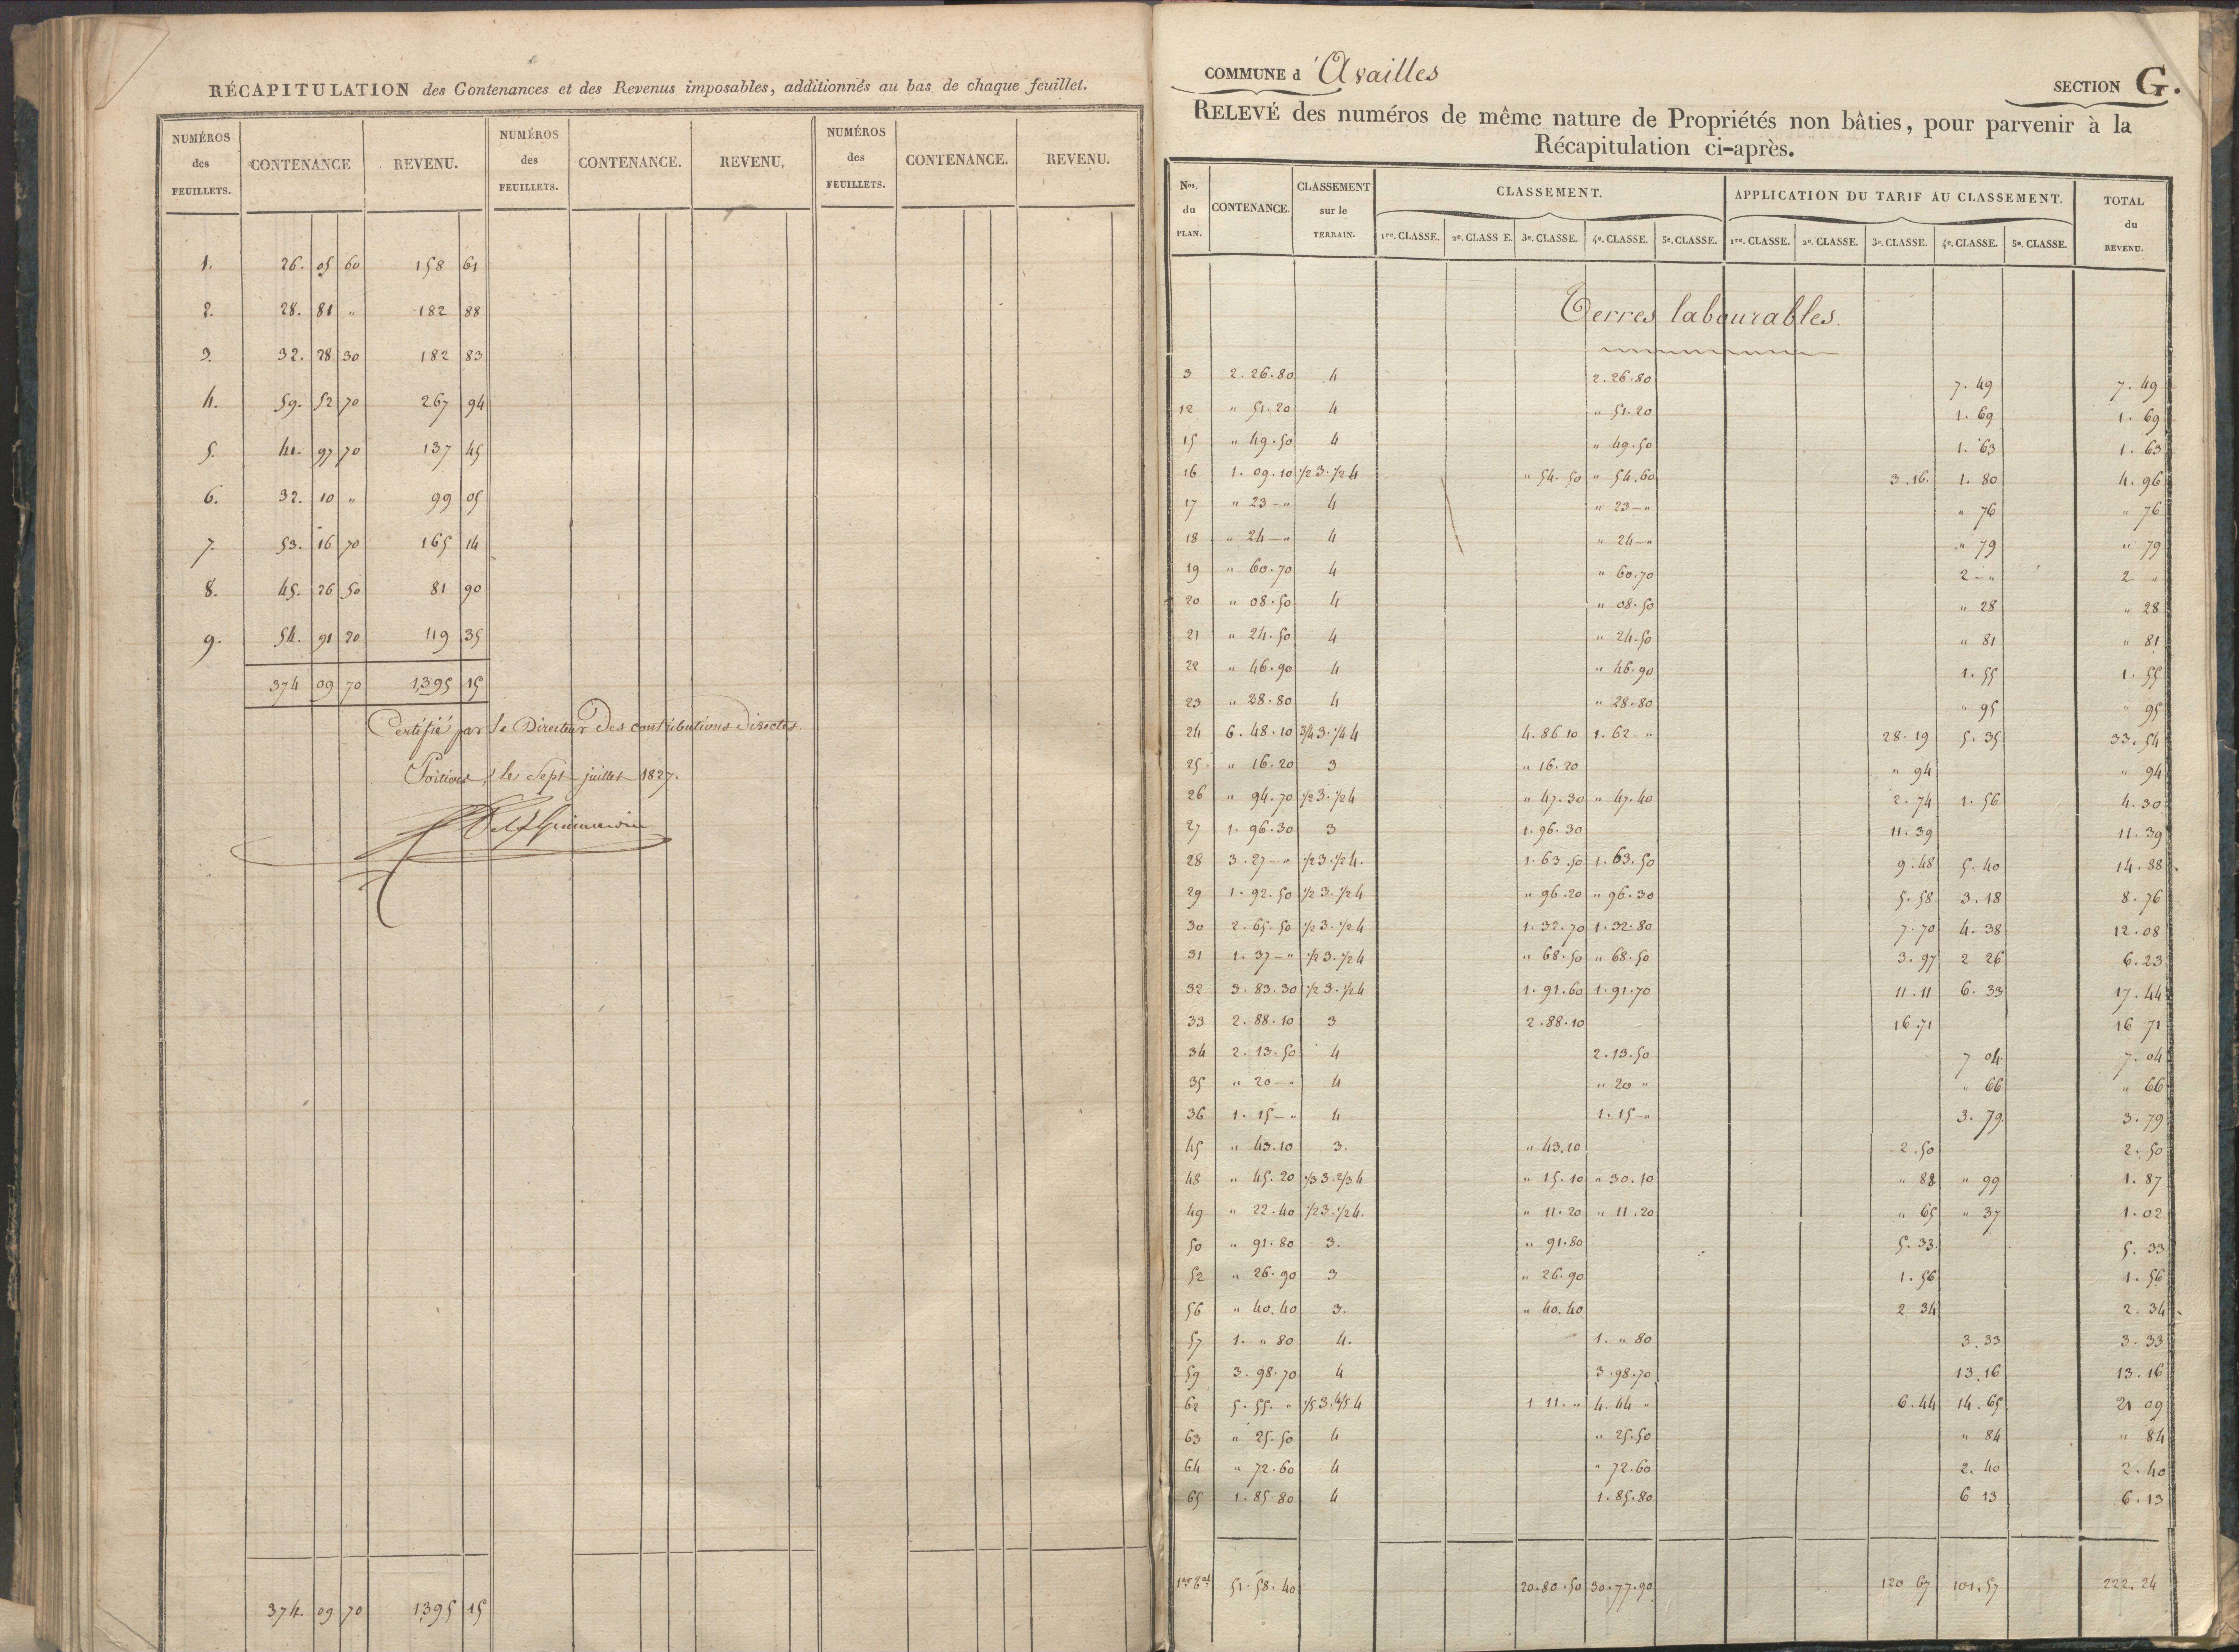 RÉCAPITULATION des Contenances et des Revenus imposables, additionnés au bas de chaque feuillet.
NUMÉROS des FEUILLETS. CONTENANCE REVENU. NUMÉROS des FEUILLETS. CONTENANCE. REVENU. NUMÉROS des FEUILLETS. CONTENANCE. REVENU.
1. 26. 05 60 158 61
2. 28. 81 " 182 88
3. 32. 28 30 182 83
4. 59. 52 70 267 94
5. 41. 97 70 137 45
6. 32. 10 " 99 05
7. 53. 16 70 165 14
8. 45. 26 50 81 90
9. 54. 91 20 119 35
374 09 70 1,395 15
Certifié par le Directeur des contributions directes.
Poitiers, le Sept juillet 1827.
374. 09 70 1,395 15
COMMUNE d'Availles
SECTION G.
RELEVÉ des numéros de même nature de Propriétés non bâties, pour parvenir à la
Récapitulation ci-après.
Nos. du PLAN. CONTENANCE. CLASSEMENT sur le TERRAIN. CLASSEMENT. APPLICATION DU TARIF AU CLASSEMENT. TOTAL du REVENU.
1re. CLASSE. 2e. CLASSE. 3e. CLASSE. 4e. CLASSE. 5e. CLASSE. 1re. CLASSE. 2e. CLASSE. 3e. CLASSE. 4e. CLASSE. 5e. CLASSE.
Terres labourables.
3 2. 26. 80 4 2. 26. 80 7. 49 7. 49
12 " 51. 20 4 " 51. 20 1. 69 1. 69
15 " 49. 50 4 " 49. 50 1. 63 1. 63
16 1. 09. 10 1/2 3. 1/2 4 " 54. 50 " 54. 60 3. 16. 1. 80 4. 96
17 " 23 - " 4 " 23 - " " 76 " 76
18 " 24 - " 4 " 24 - " " 79 " 79
19 " 60. 70 4 " 60. 70 2 - " 2 "
20 " 08. 50 4 " 08. 50 " 28 " 28
21 " 24. 50 4 " 24. 50 " 81 " 81
22 " 46. 90 4 " 46. 90 1. 55 1. 55
23 " 28. 80 4 " 28. 80 " 95 " 95
24 6. 48. 10 3/4 3. 1/4 4 4. 86 10 1. 62. " 28. 19 5. 35 33. 54
25 " 16. 20 3 " 16. 20 " 94 " 94
26 " 94. 70 1/2 3. 1/2 4 " 47. 30 " 47. 40 2. 74 1. 56 4. 30
27 1. 96. 30 3 1. 96. 30 11. 39 11. 39
28 3. 27 - " 1/2 3. 1/2 4. 1. 63. 50 1. 63. 50 9. 48 5. 40 14. 88
29 1. 92. 50 1/2 3. 1/2 4 " 96. 20 " 96. 30 5. 58 3. 18 8. 76
30 2. 65. 50 1/2 3. 1/2 4 1. 32. 70 1. 32. 80 7. 70 4. 38 12. 08
31 1. 37 - " 1/2 3. 1/2 4 " 68. 50 " 68. 50 3. 97 2 26 6. 23
32 3. 83. 30 1/2 3. 1/2 4 1. 91. 60 1. 91. 70 11. 11 6. 33 17. 44
33 2. 88. 10 3 2. 88. 10 16. 71 16 71
34 2. 13. 50 4 2. 13. 50 7 04 7. 04
35 " 20 - " 4 " 20 " " 66 " 66
36 1. 15 - " 4 1. 15 - " 3. 79 3. 79
45 " 43. 10 3. " 43. 10 2. 50 2. 50
48 " 45. 20 1/3 3. 2/3 4 " 15. 10 " 30. 10 " 88 " 99 1. 87
49 " 22. 40 1/2 3. 1/2 4. " 11. 20 " 11. 20 " 65 " 37 1. 02
50 " 91. 80 3. " 91. 80 5. 33 5. 33
52 " 26. 90 3 " 26. 90 1. 56 1. 56
56 " 40. 40 3. " 40. 40 2 34 2. 34
57 1. " 80 4. 1. " 80 3. 33 3. 33
59 3. 98. 70 4 3. 98. 70 13. 16 13. 16
62 5. 55. " 1/5 3. 4/5 4 1 11. " 4. 44 " 6. 44 14. 65 21 09
63 " 25. 50 4 " 25. 50 " 84 " 84
64 " 72. 60 4 " 72. 60 2. 40 2. 40
65 1. 85. 80 4 1. 85. 80 6 13 6. 13
51. 58. 40 20. 80. 50 30. 77. 90 120 67 101. 57 222. 24